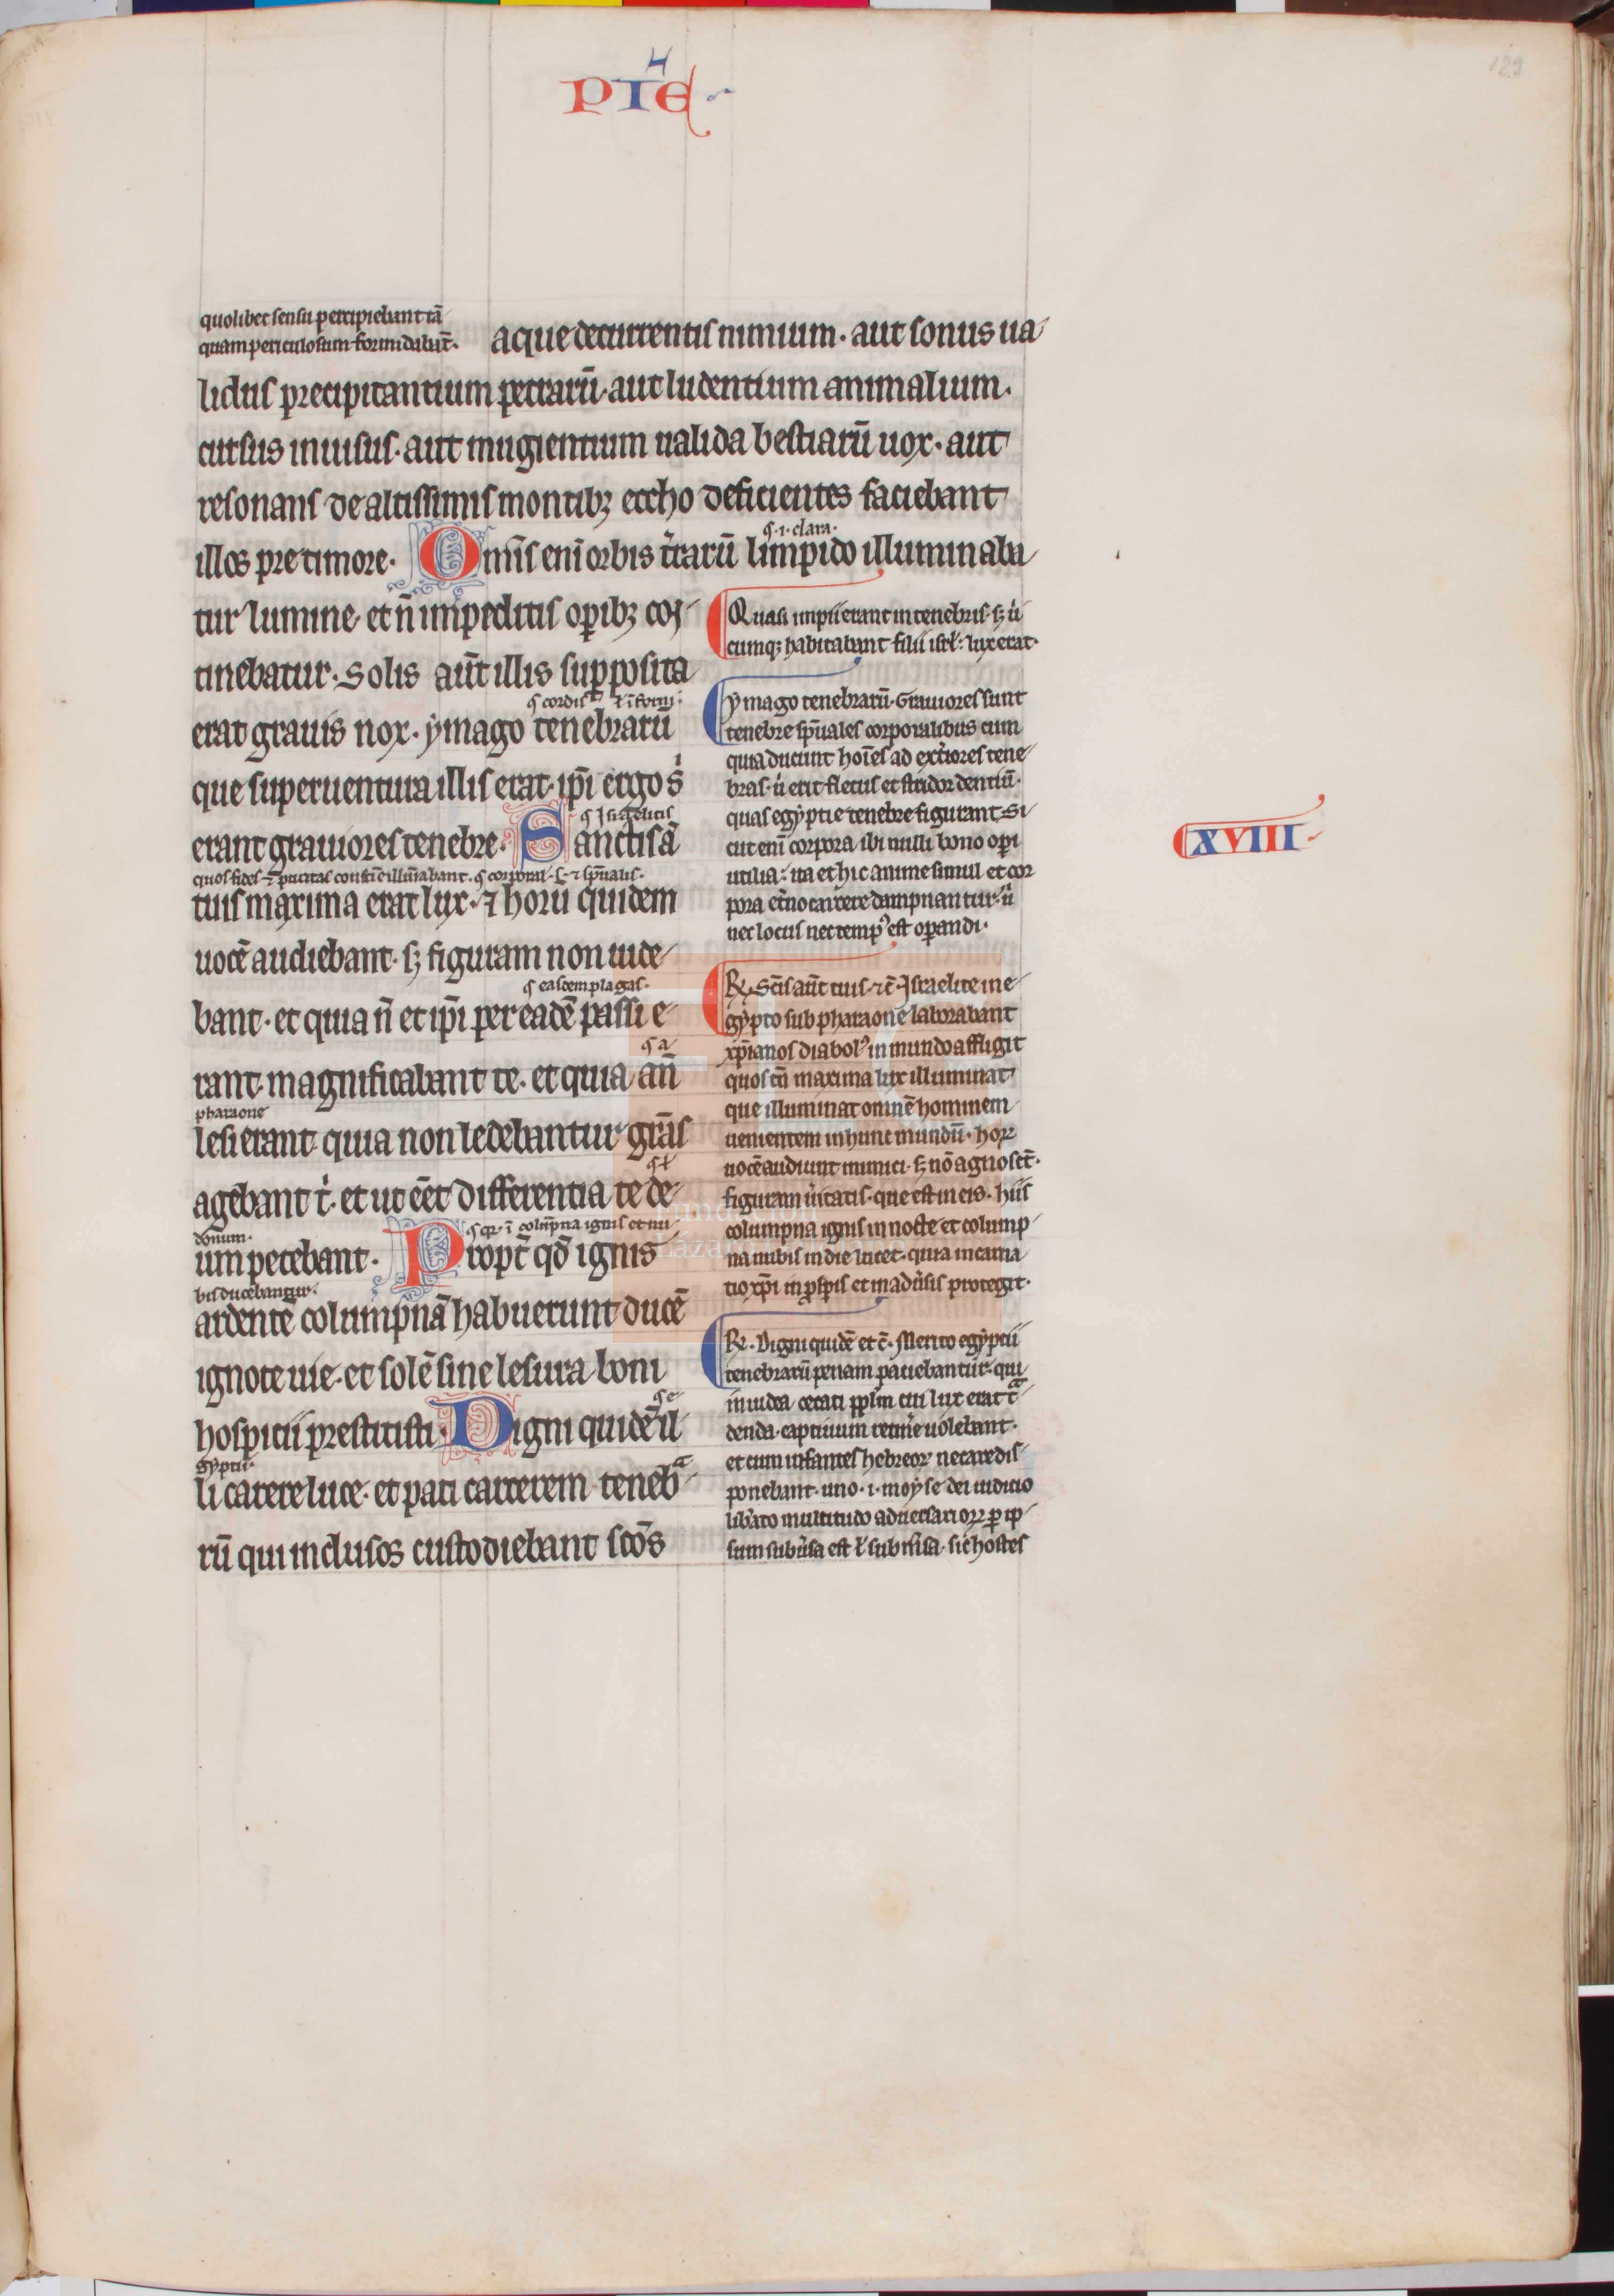 PIE
129
quolibet sensu percipiebant tā
quam periculosum formidabāt.
aque decurrentis nimium. aut sonus ua
lidus precipitantium petrarū. aut ludentium animalium.
cursus inuisus. aut mugientium ualida bestiarū uox. aut
resonans de altissimis montibꝫ eccho deficientes faciebant
.i. clara.
illos pre timore. Omīs enī orbis t̄rarū limpido illuminaba
tur lumine. et n̄ impeditis opibꝫ cō
tinebatur. Solis aūt illis supposita
cordis
erat grauis nox. ymago tenebrarū
que superuentura illis erat. ip̄i ergo s
erant grauiores tenebre. Sanctis ā
tuis maxima erat lux. ⁊ horū quidem
uocē audiebant. sꝫ figuram non uide
easdem plagas.
bant. et quia n̄ et ip̄i per eadē passi e
rant. magnificabant te. et quia an̄
pharaone
lesi erant quia non ledebantur grās
agebant t. et ut eēt differentia te de
donum.
um petebant. Propt̄ qd̄ ignis
bis ducebantur.
ardentē columpnā habuerunt ducē
ignote uie. et solē sine lesura boni
hospitii prestitisti. Digni quidē il
gyptii.
li carere luce. et pati carcerem teneb
rū qui inclusos custodiebant scōs
Quasi impii erant in tenebris. sꝫ u
cumqꝫ habitabant filii isrl. lux erat.
ymago tenebrarū. Grauiores sunt
tenebre sp̄uales corporalibus cum
quia ducunt hoīes ad ext̄iores tene
bras. u erit fletus et stridor dentiū.
quas egyptie tenebre figurant. Si
cut enī corpora ibi nulli bono opi
utilia. ita et hic anime simul et cor
pora et̄no carcere dampnantur. u
nec locus nec temp⁹ est opandi.
XVIII
R. Scīs aūt tuis. ⁊c̄. Israelite in e
gypto sub pharaone laborabant
xp̄ianos diabol⁹ in mundo affligit
quos tn̄ maxima lux illuminat
que illuminat omnē hominem
uenientem in hunc mundū. hoꝝ
uocē audiunt inimici. sꝫ nō agnosct̄.
figuram u̇itatis. que est in eis. hiis
columpna ignis in nocte et colump
na nubis in die lucet. quia incarna
tio xp̄i in psp̄is et in adu̇sis protegit.
R. Digni quidē et c̄. Merito egyptii
tenebrarū penam patiebantur. qui
inuidia cecati pplm cui lux erat t̄
denda. captiuum retin̄e uolebant.
et cum infantes hebreoꝝ necare dis
ponebant. uno .i. moyse dei iudicio
lib̄ato multitudo aduersarioꝝ p ip
sum subu̇sa est ł submsa. sic hostes